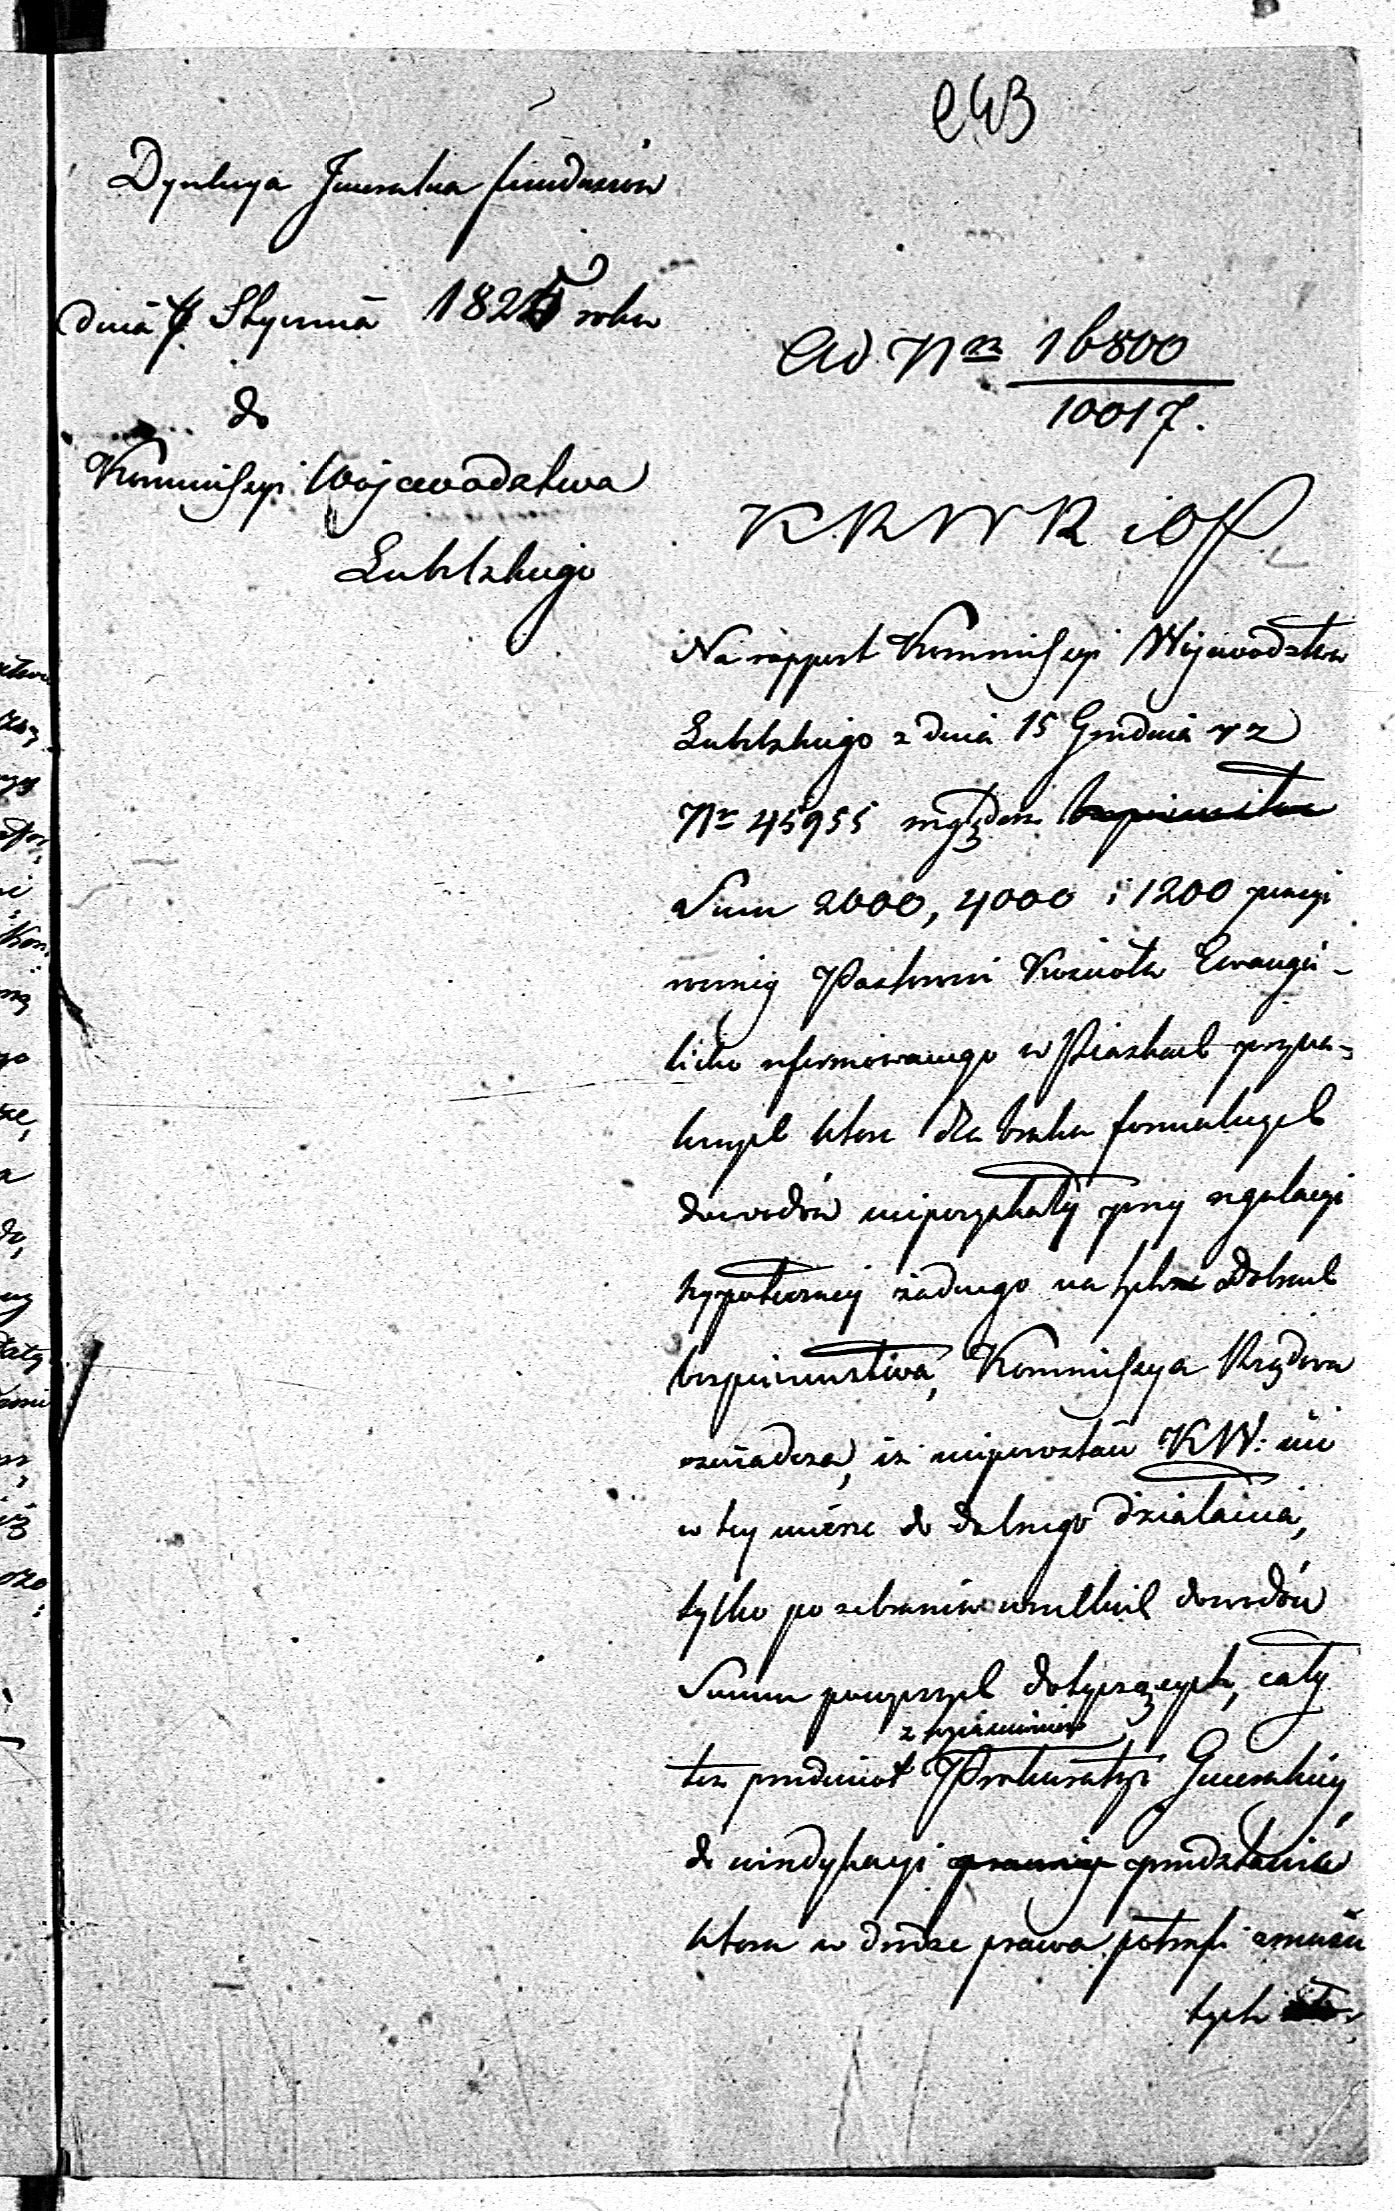 243
Dyrekcya Jeneralna funduszów
dnia 7 Stycznia 1825 roku
do
Kommissyi Wojewodztwa
Lubelskiego
Ad Nrn 16800
10017.
K R W R i O P
Na rapport Kommissyi Wojewodztwa
Lubelskiego z dnia 15 Grudnia r z
Nr 45955 względem bespieczenstwa
Summ 2000, 4000 i 1200
Pastorowi Kościoła Ewangie-
licko reformowanego w Piaskach przypa-
które dla braku formalnych
dowodów niepozyskały przy regulacyi
hypoteczney żadnego na tychże Dobrach
bespieczenstwa, Kommissya Rządowa
oświadcza, iż niepozostaie KW: nic
w tey mierze do dalszego działania,
tylko po zebraniu wszelkich dowodów
Summ powyższych dotyczących, cały
z wyiaśnieniem
ten przedmiot Prokuratoryi Generalney
do windykacyi prawney przedstawić
która w drodze prawa potrafi zmusić
tych